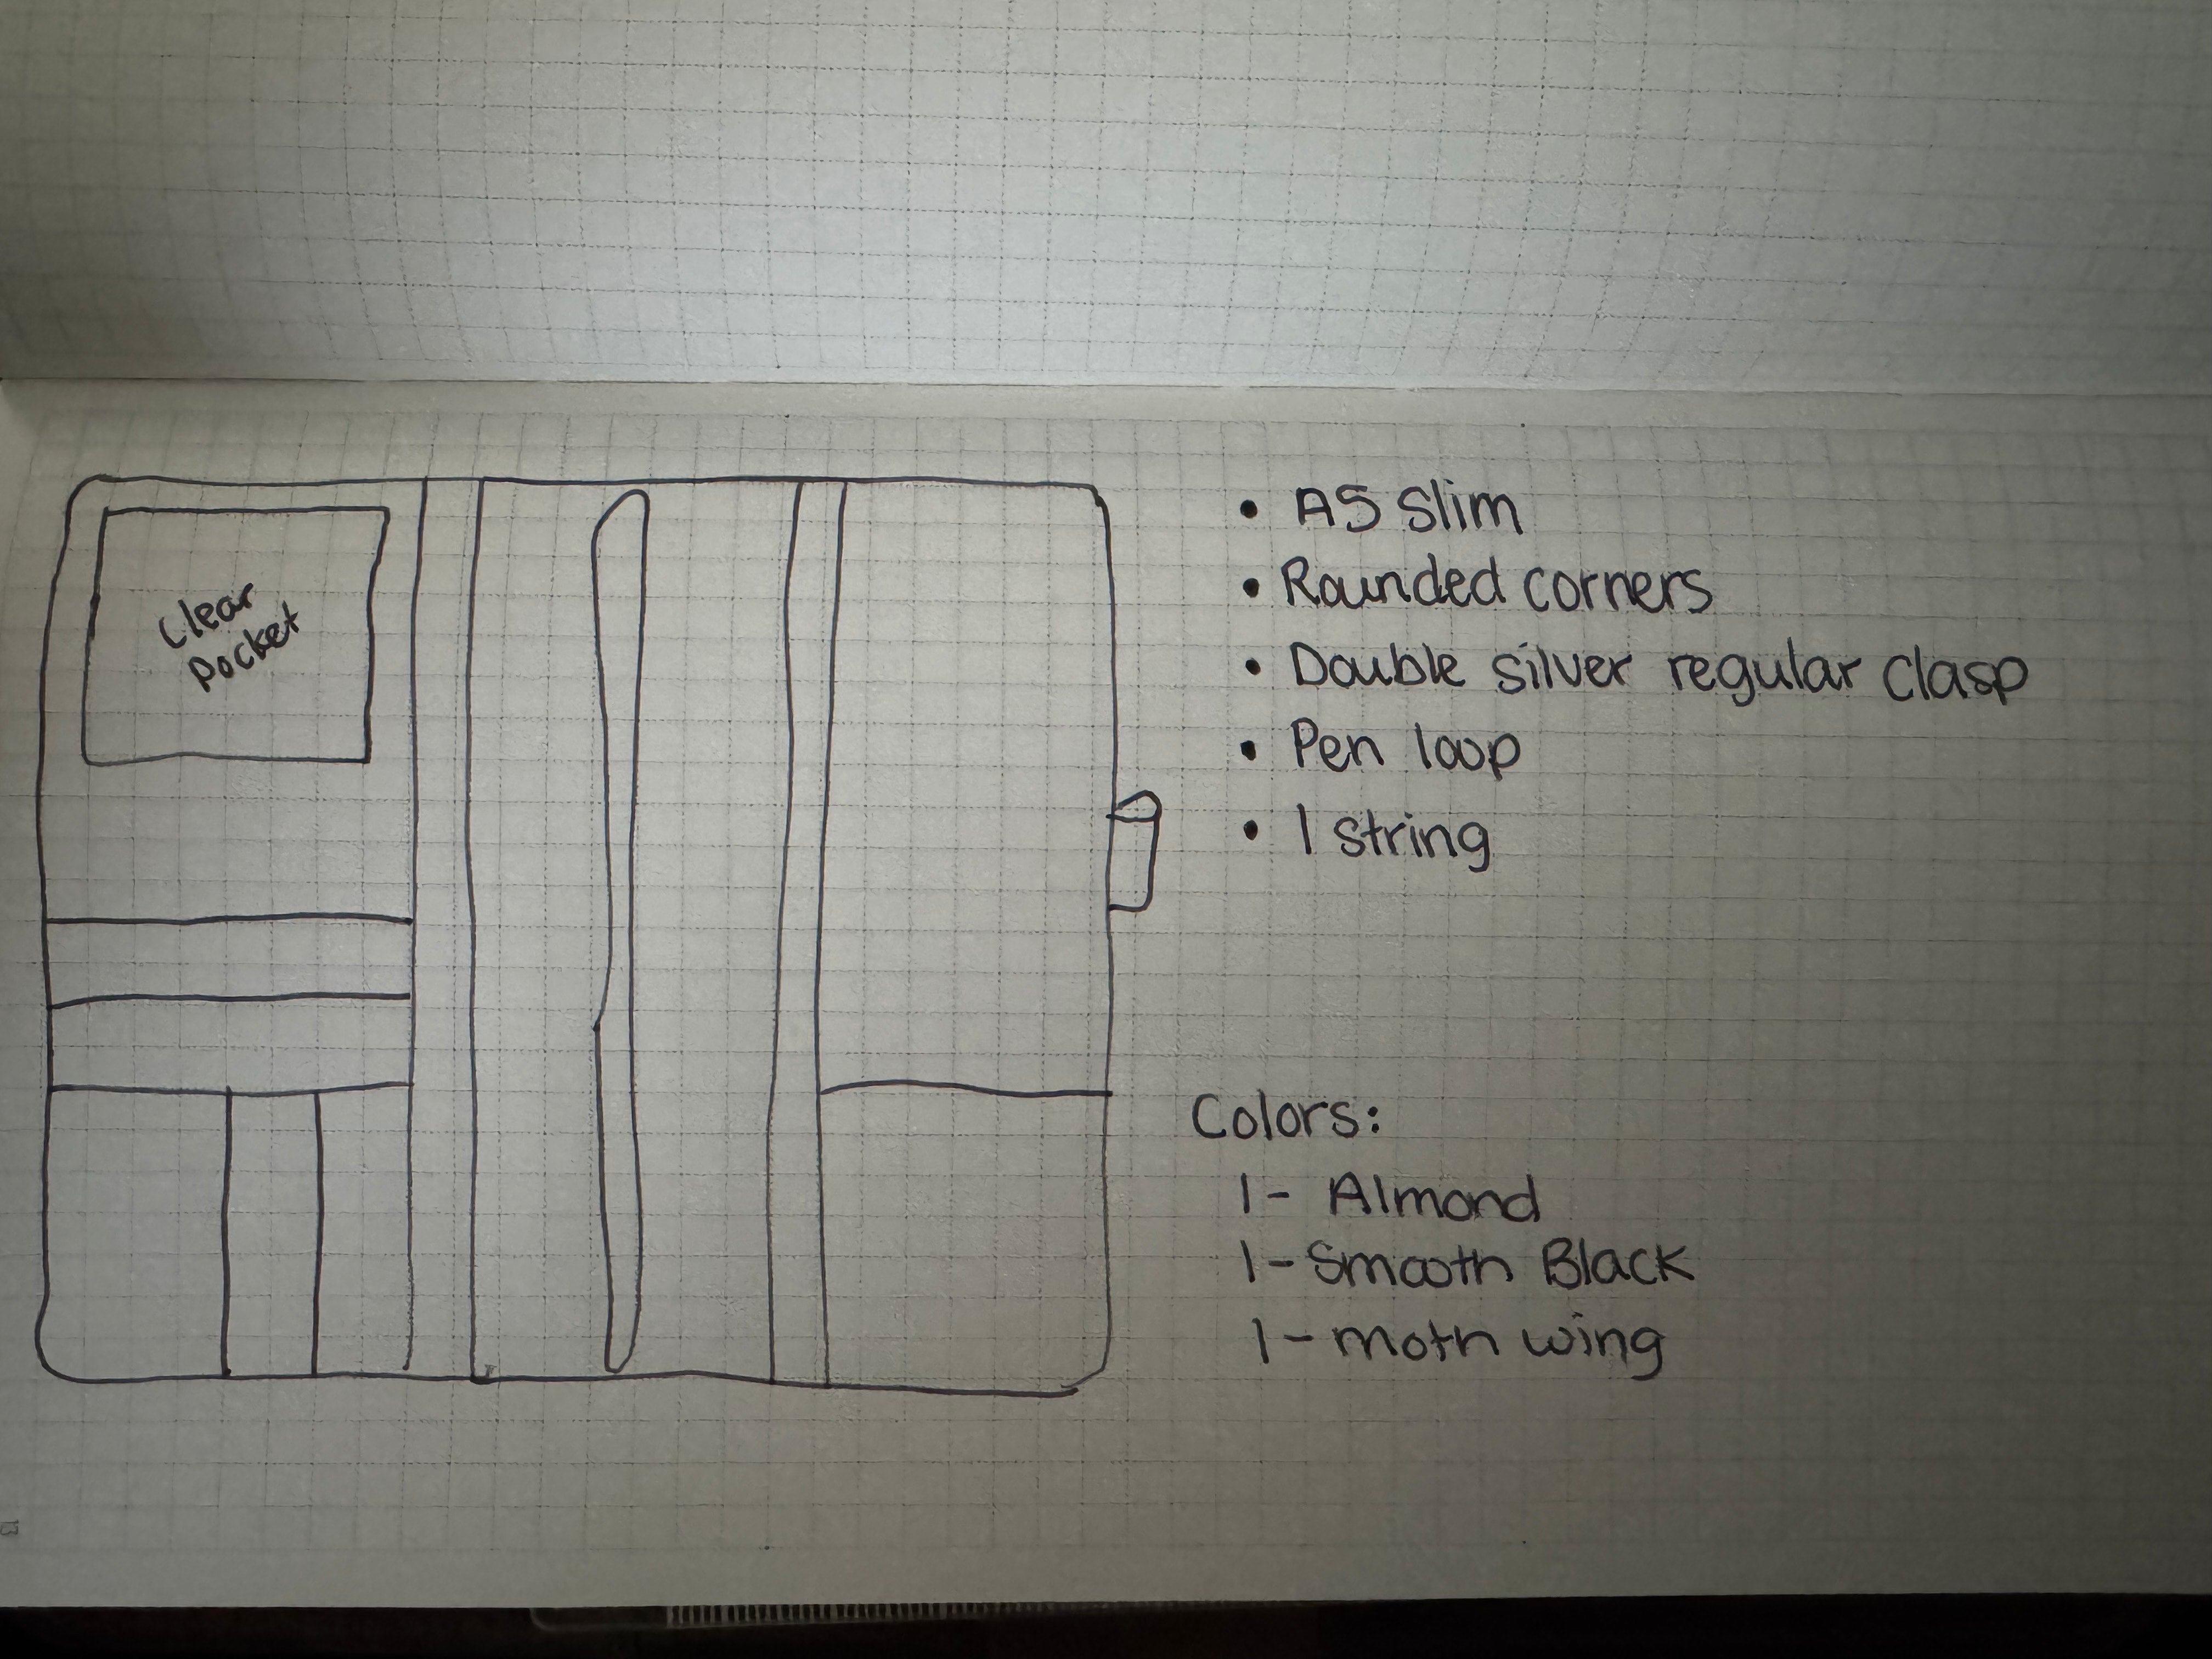 Clear
Pocket
• A5 Slim
• Rounded corners
• Double silver regular clasp
• Pen loop
• 1 string
Colors:
1- Almond
1- Smooth Black
1- moth wing
13